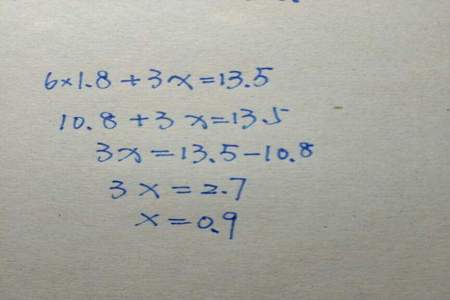 6×1.8+3x=13.5
10.8+3x=13.5
3x=13.5-10.8
3x=2.7
x=0.9